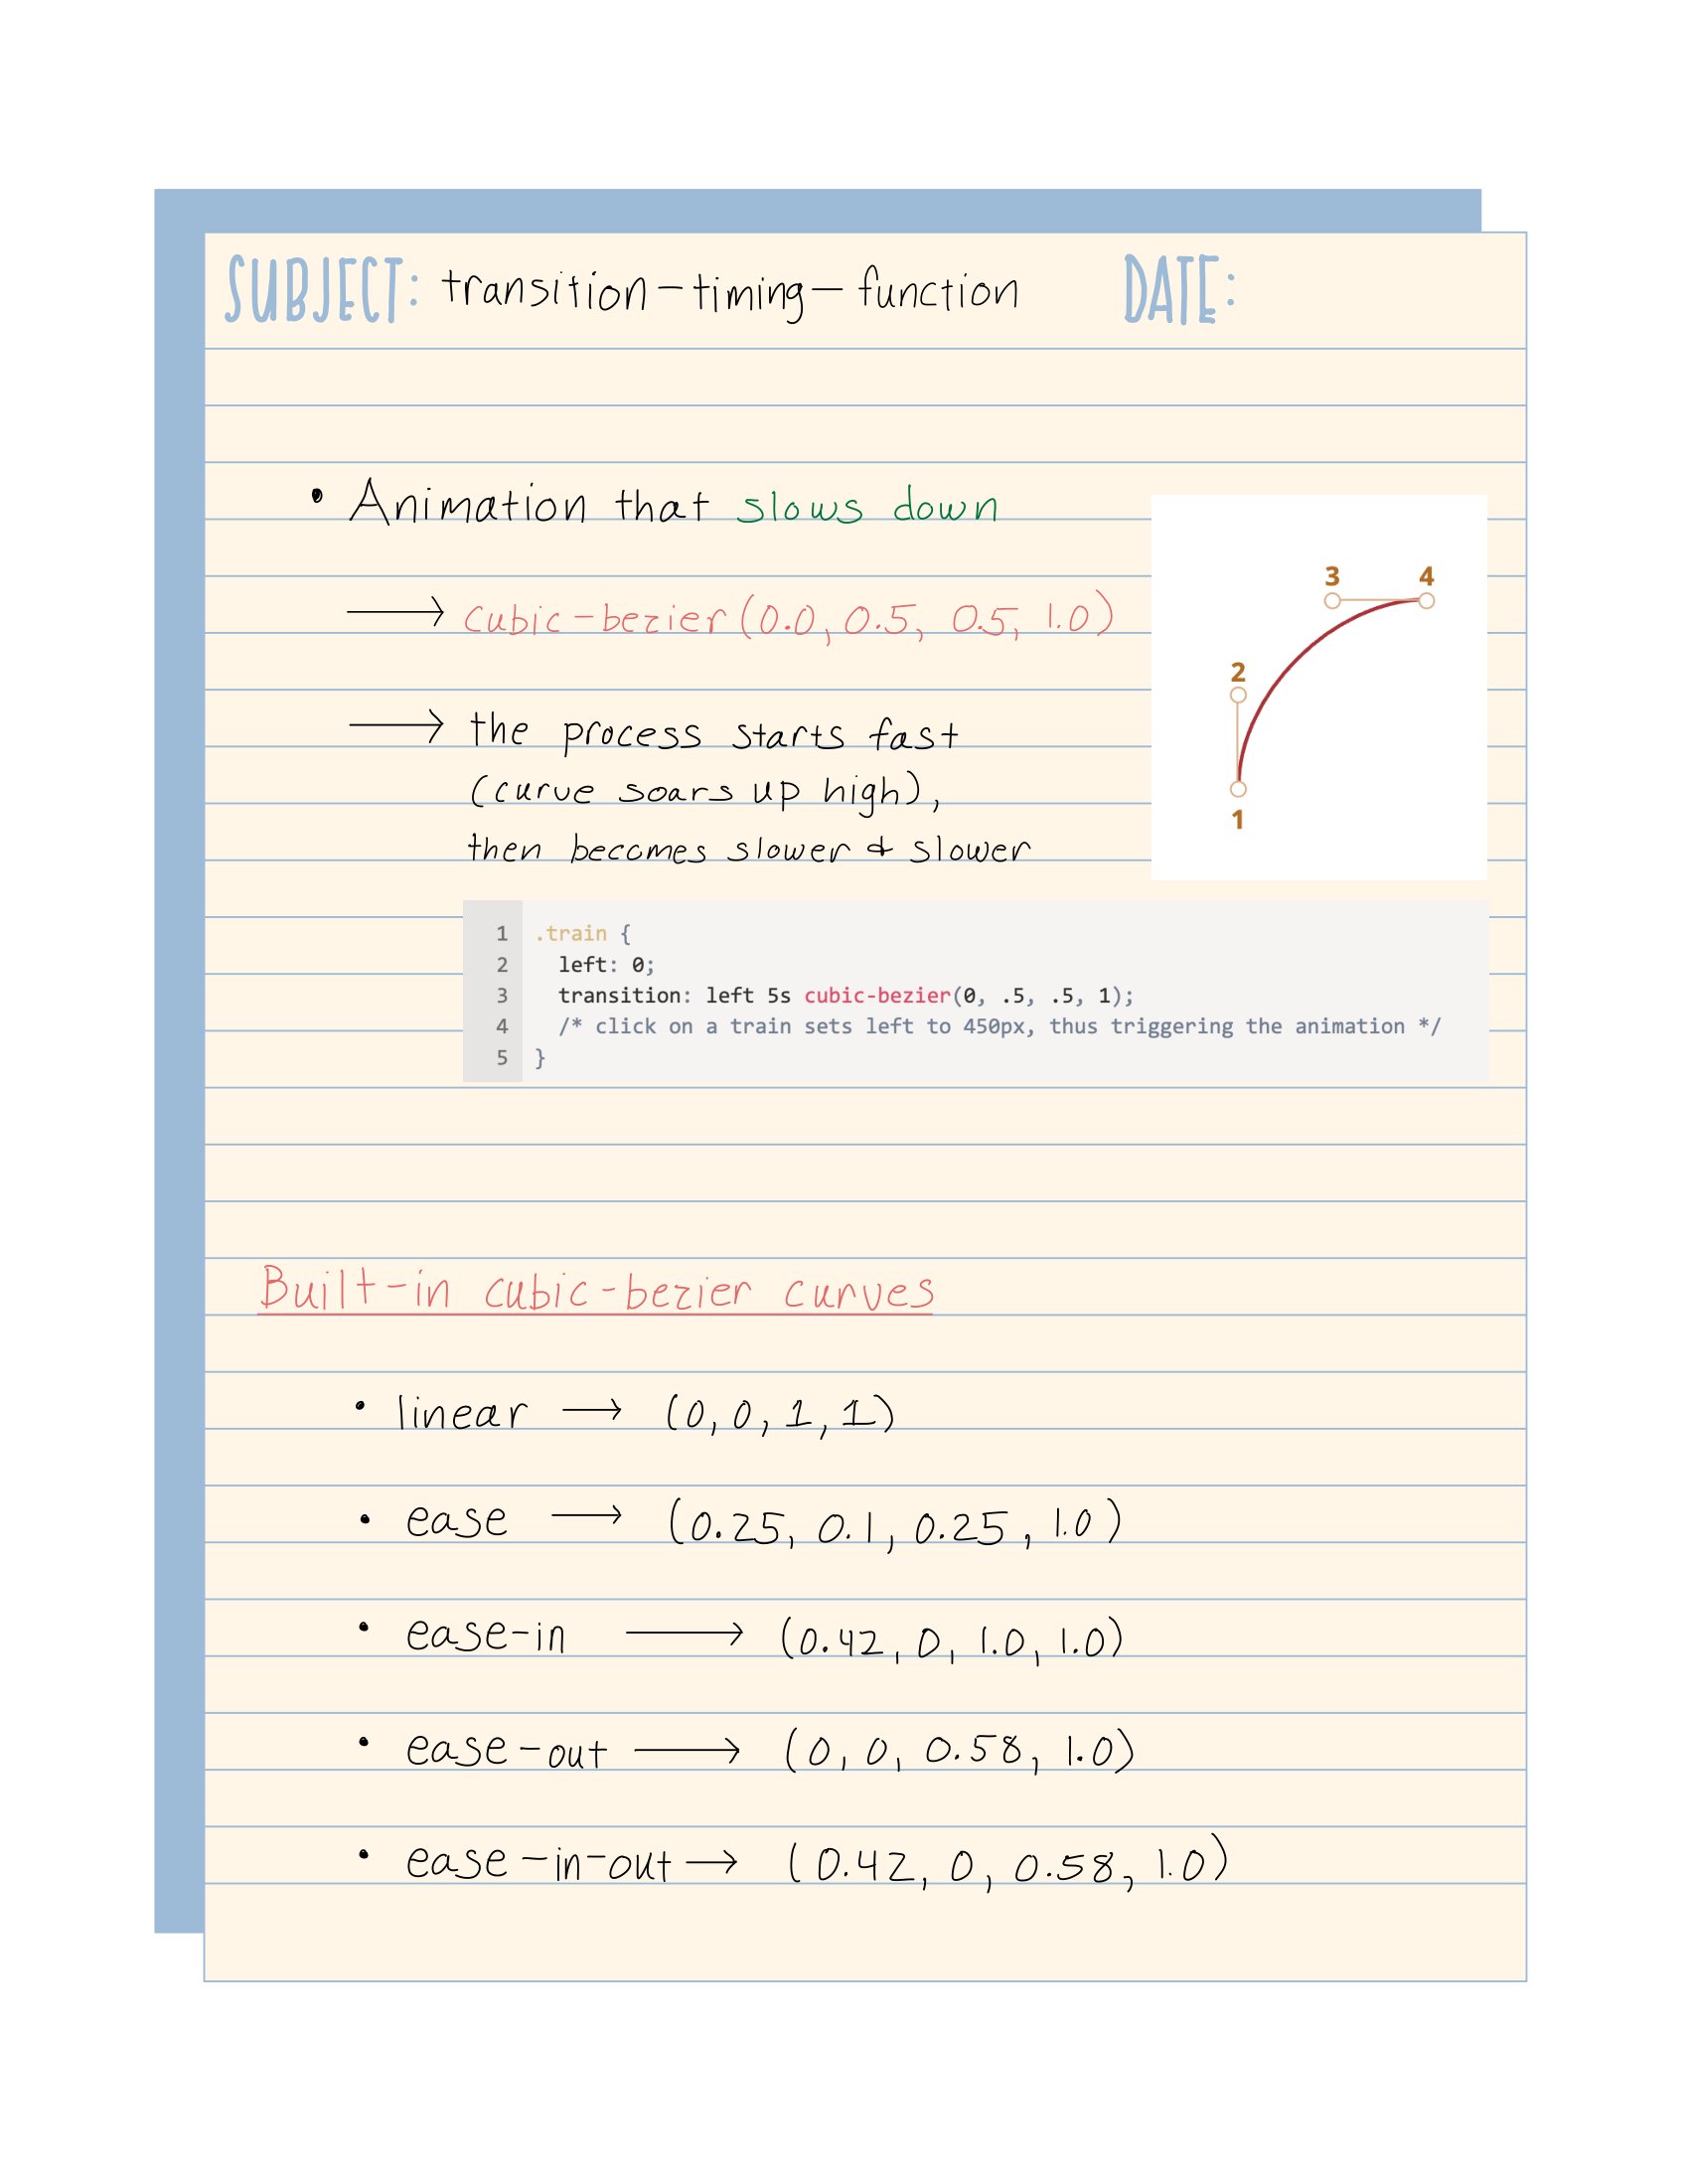 SUBJECT: transition-timing-function DATE:
• Animation that slows down
→ cubic-bezier(0.0, 0.5, 0.5, 1.0)
3 4
2
1
→ the process starts fast
(curve soars up high),
then becomes slower & slower
1 .train {
2 left: 0;
3 transition: left 5s cubic-bezier(0, .5, .5, 1);
4 /* click on a train sets left to 450px, thus triggering the animation */
5 }
Built-in cubic-bezier curves
• linear → (0, 0, 1, 1)
• ease → (0.25, 0.1, 0.25, 1.0)
• ease-in → (0.42, 0, 1.0, 1.0)
• ease-out → (0, 0, 0.58, 1.0)
• ease-in-out → (0.42, 0, 0.58, 1.0)